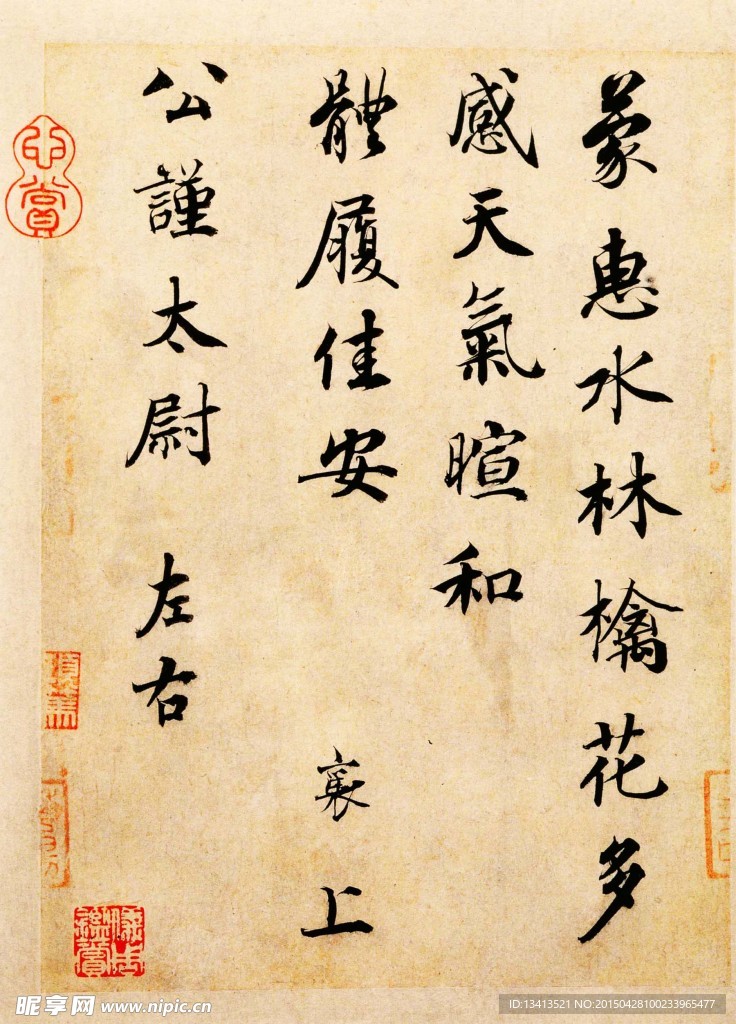 蒙惠水林檎花多
感天氣暄和
體履佳安
襄上
公謹太尉 左右
昵享网 www.nipic.cn
ID:13413521 NO:20150428100233965477